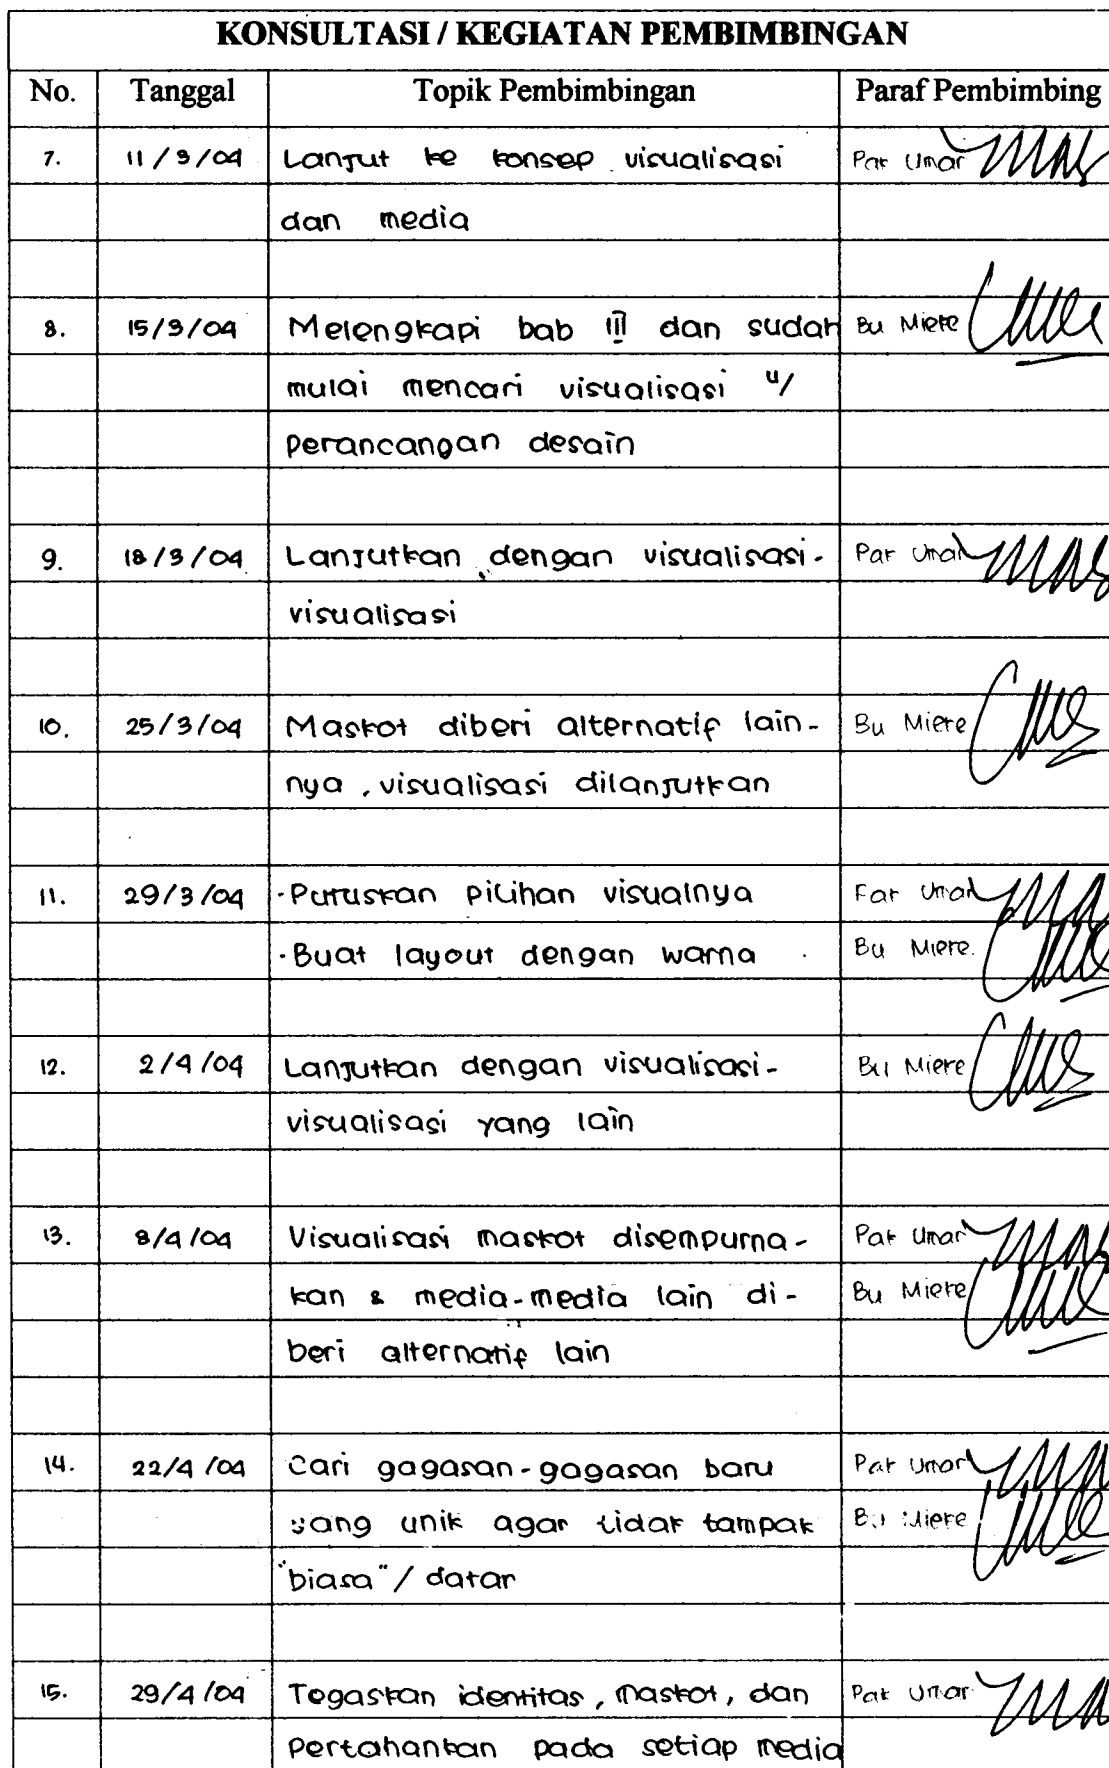 KONSULTASI / KEGIATAN PEMBIMBINGAN
No. Tanggal Topik Pembimbingan Paraf Pembimbing
7. 11/3/04 Lanjut ke konsep visualisasi Pak Umar
dan media
8. 15/3/04 Melengkapi bab III dan sudah Bu Mieke
mulai mencari visualisasi u/
perancangan desain
9. 18/3/04 Lanjutkan dengan visualisasi- Pak Umar
visualisasi
10. 25/3/04 Maskot diberi alternatif lain- Bu Mieke
nya, visualisasi dilanjutkan
11. 29/3/04 -Putuskan pilihan visualnya Pak Umar
-Buat layout dengan warna Bu Mieke.
12. 2/4/04 Lanjutkan dengan visualisasi- Bu Mieke
visualisasi yang lain
13. 8/4/04 Visualisasi maskot disempurna- Pak Umar
kan & media-media lain di- Bu Mieke
beri alternatif lain
14. 22/4/04 Cari gagasan-gagasan baru Pak Umar
yang unik agar tidak tampak Bu Mieke
"biasa"/ datar
15. 29/4/04 Tegaskan identitas, maskot, dan Pak Umar
Pertahankan pada setiap media